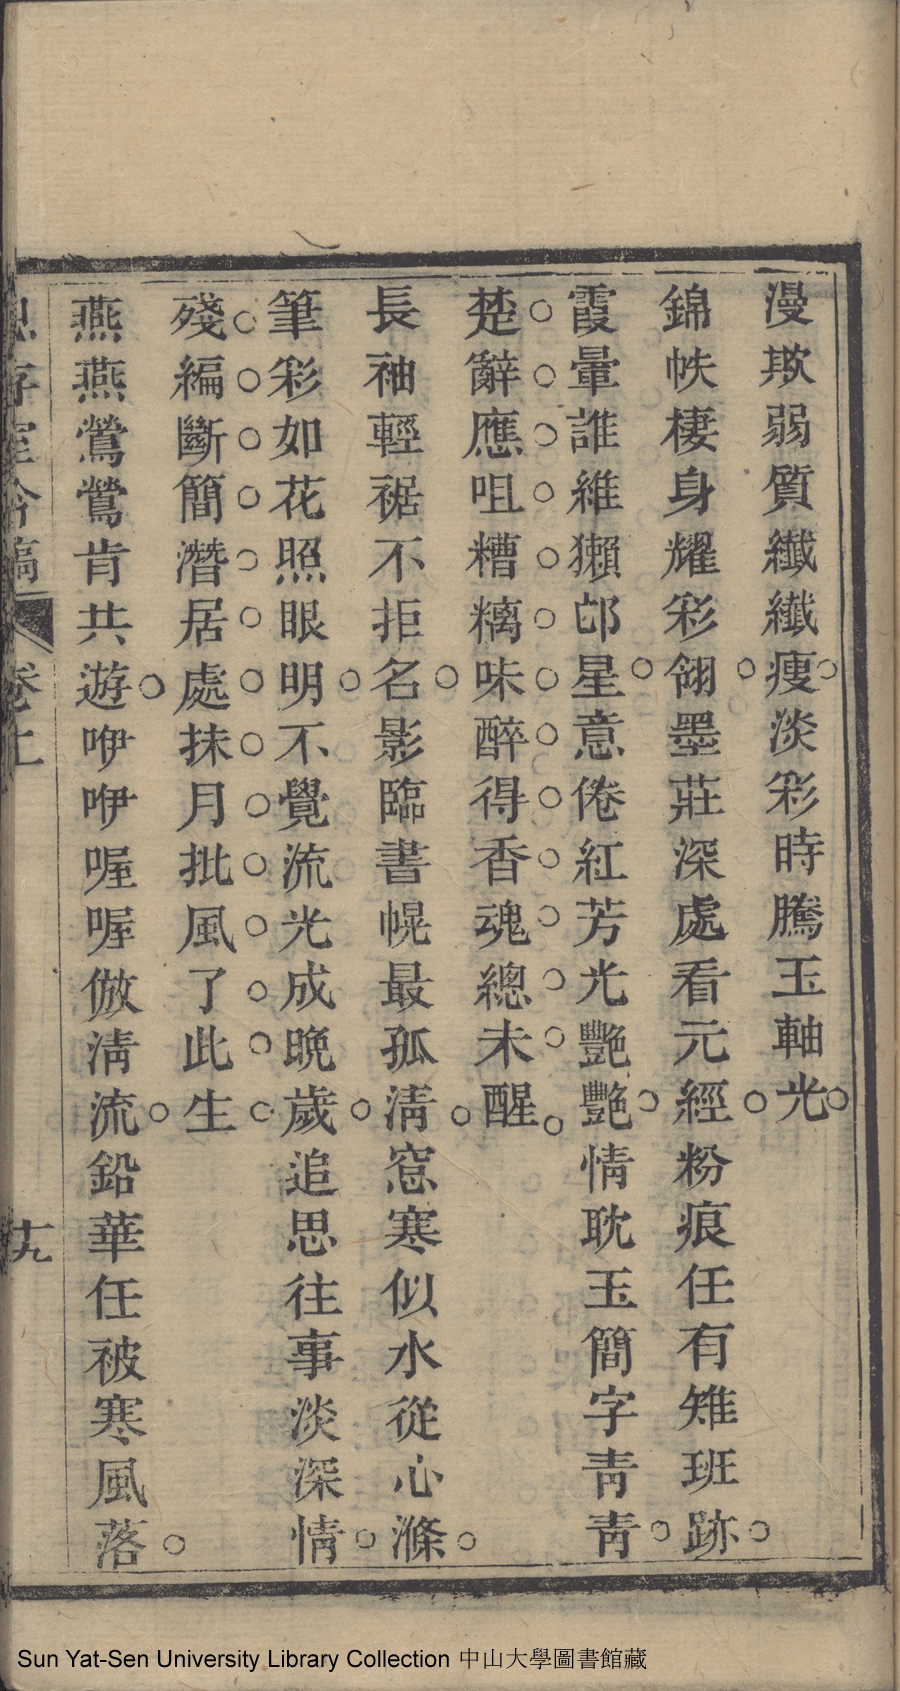 漫欺弱質纖纖瘦淡彩時騰玉軸光
錦帙棲身耀彩翎墨莊深處看元經粉痕任有雉班跡
霞暈誰維獺邙星意倦紅芳光豔豔情耽玉簡字青青
楚辭應咀糟糟味醉得香魂總未醒
長袖輕裾不拒名影臨書幌最孤清窓寒似水從心滌
筆彩如花照眼明不覺流光成晚歲追思往事淡深情
殘編斷簡潛居處抹月批風了此生
燕燕鶯鶯肯共遊咿咿喔喔倣清流鉛華任被寒風落
存室吟稿 卷上 十九
Sun Yat-Sen University Library Collection 中山大學圖書館藏